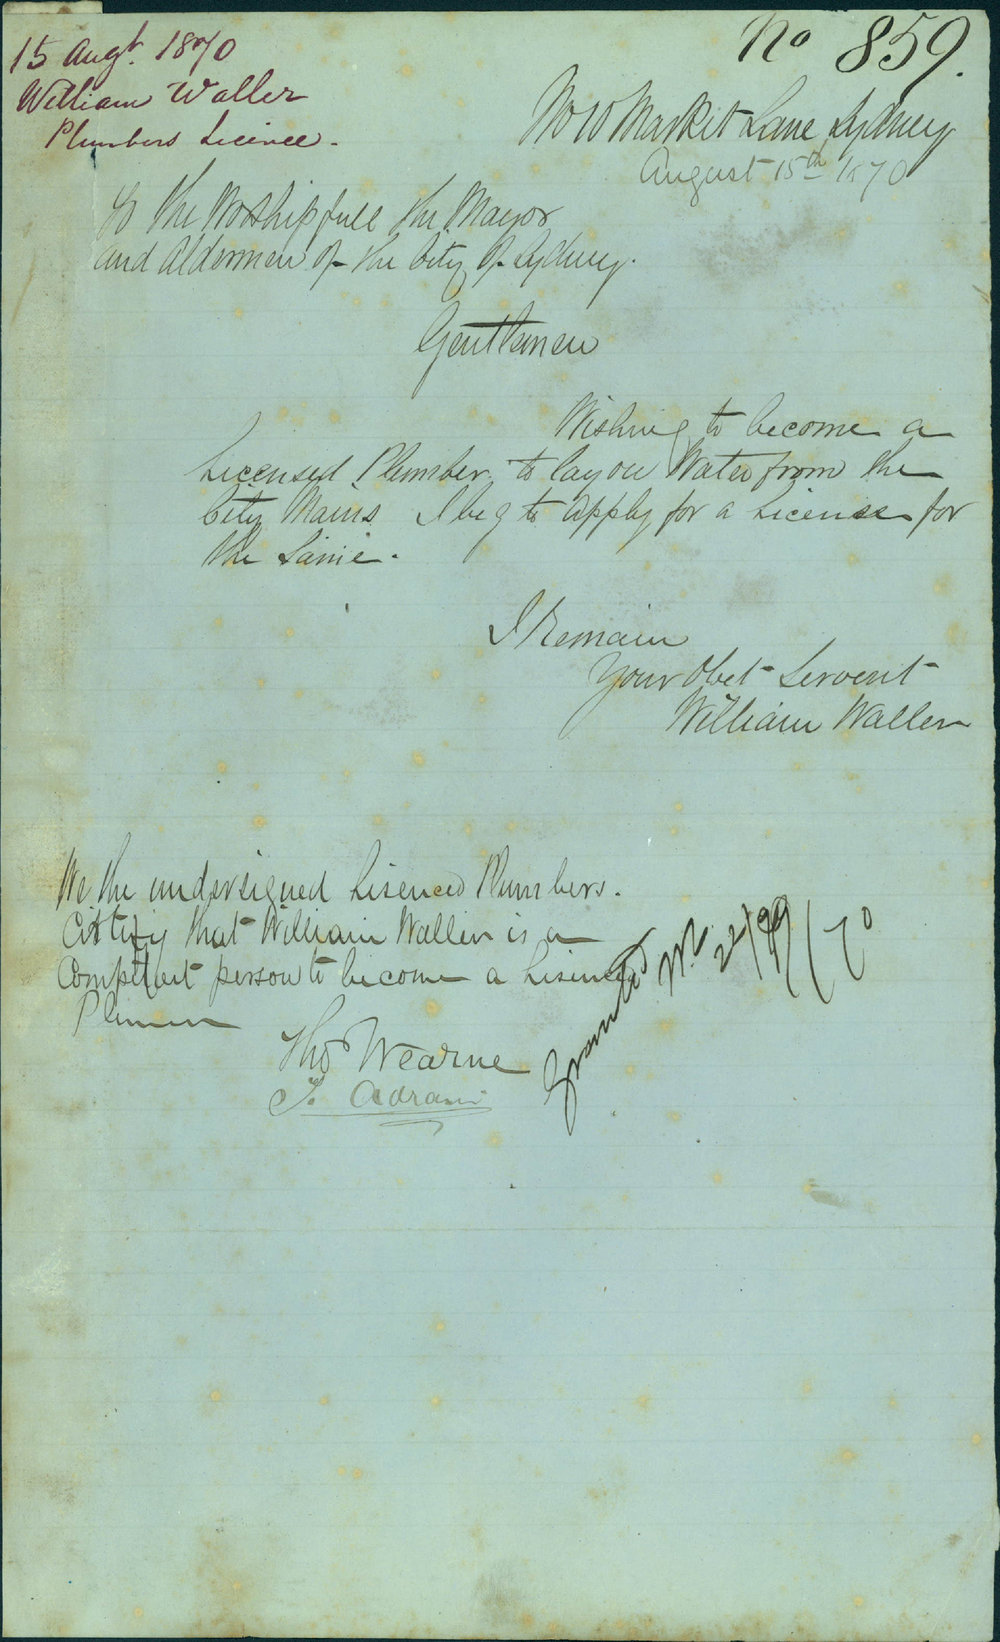 15 Augt. 1870
William Waller
Plumbers Licence.
No 859.
No 10 Market Lane Sydney
August 15th 1870
To the Worshipfull the Mayor
and Aldermen of the City of Sydney.
Gentlemen
Wishing to become a
Licensed Plumber, to lay on Water from the
City Mains I beg to apply for a License for
the Same.
I Remain
Your Obet Servent
William Waller
We the undersigned Lisenced Plumbers.
that William Waller is a
Competent person to become a
Thos Wearne
Granted